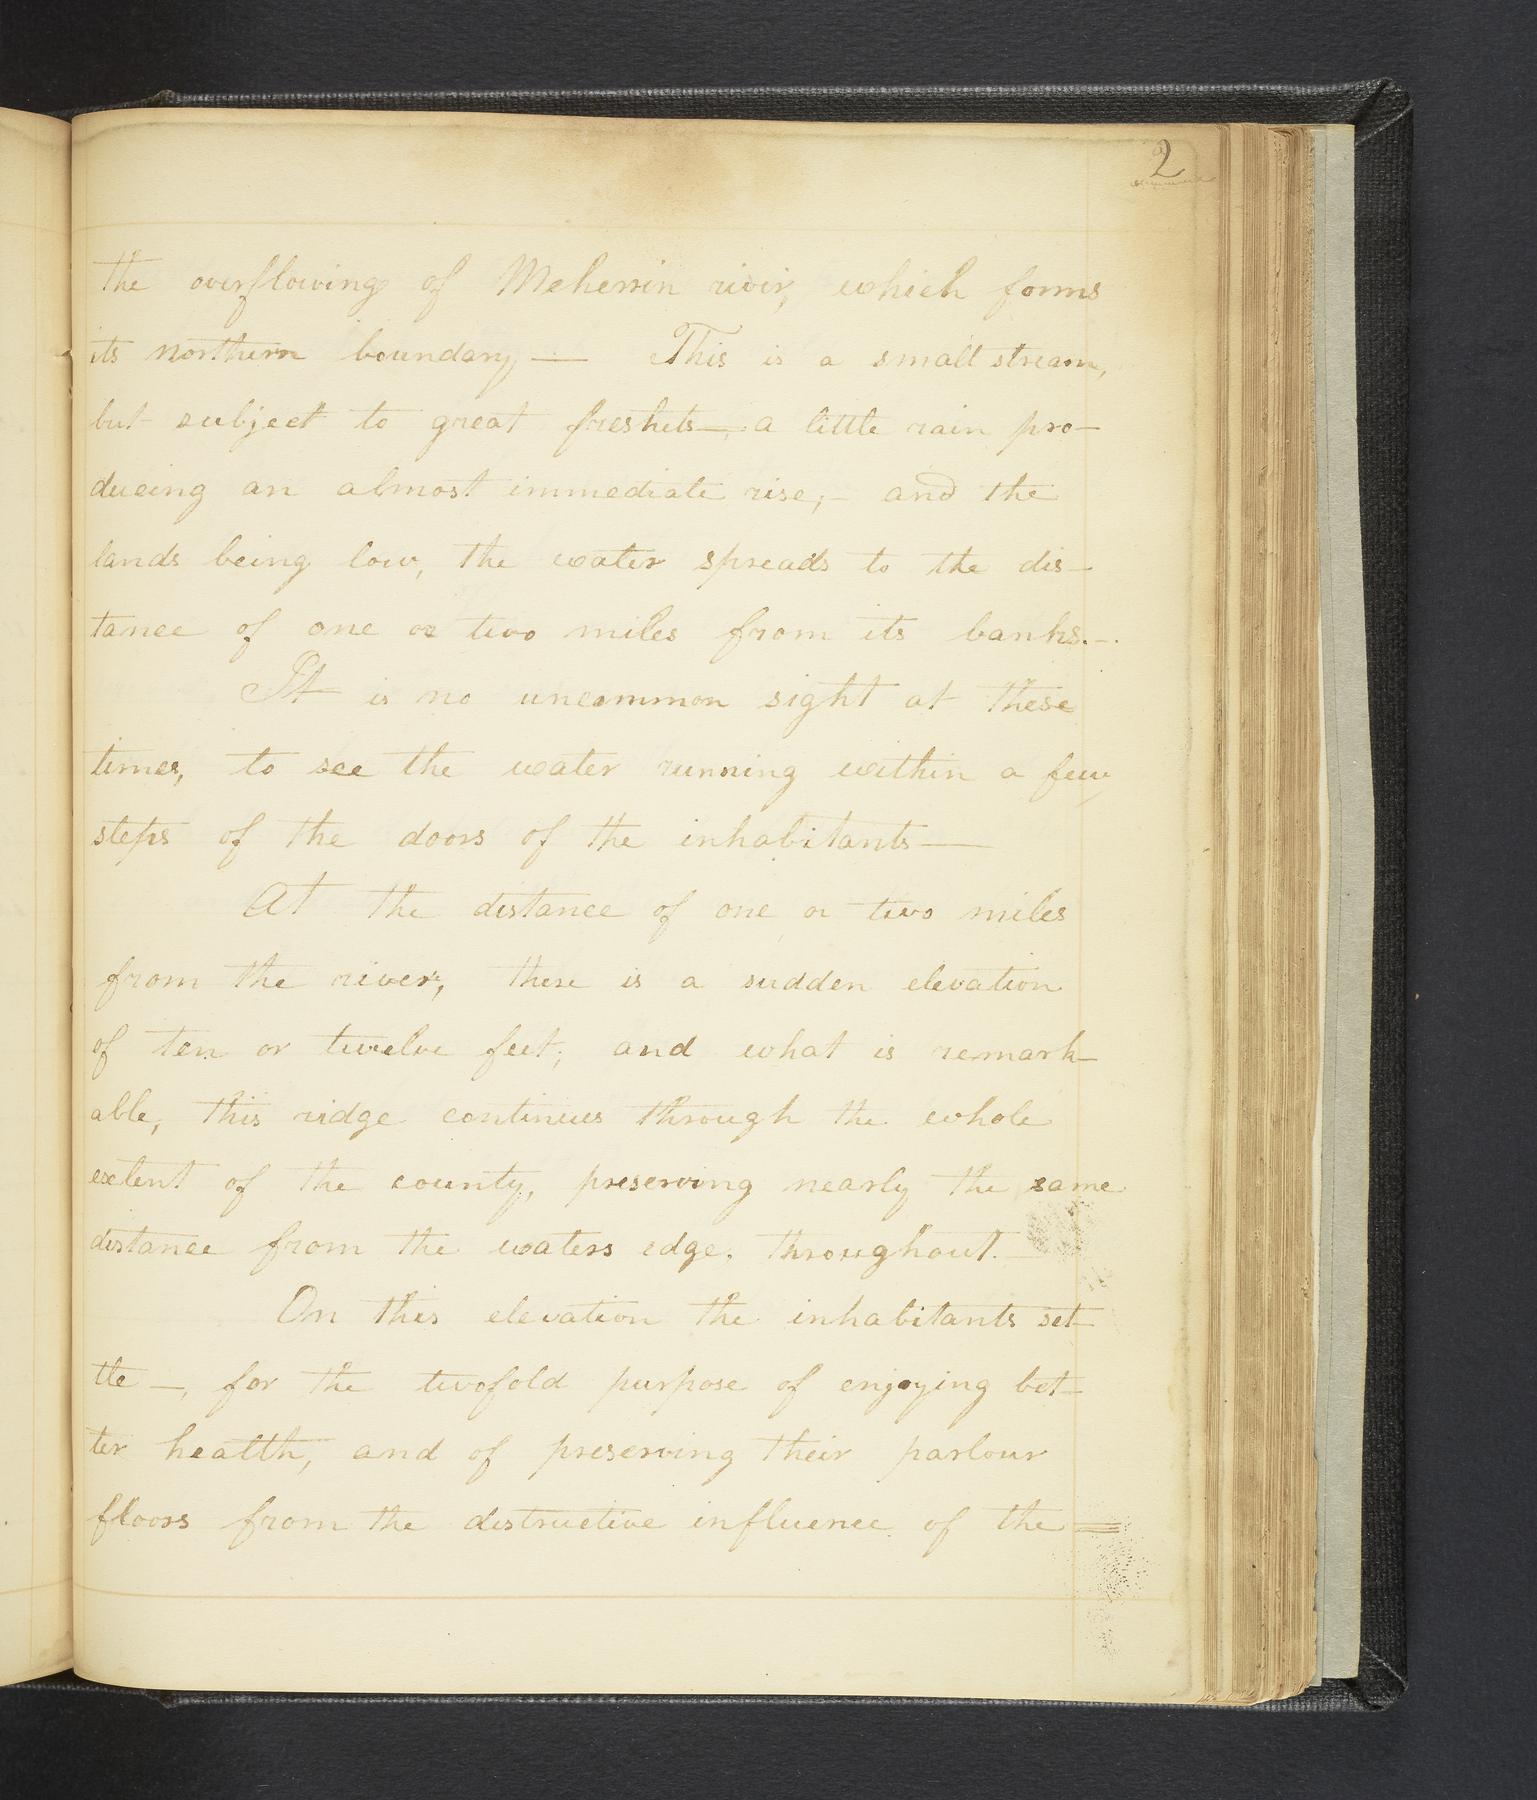 2
the overflowing of Meherrin river, which forms
its northern boundary — This is a small stream,
but subject to great freshets —, a little rain pro-
ducing an almost immediate rise; — and the
lands being low, the water spreads to the dis-
tance of one or two miles from its banks. —.
It is no uncommon sight at these
times, to see the water running within a few
steps of the doors of the inhabitants —
At the distance of one or two miles
from the river, there is a sudden elevation
of ten or twelve feet; and what is remark-
able, this ridge continues through the whole
extent of the county, preserving nearly the same
distance from the waters edge, throughout. —
On this elevation the inhabitants set-
tle —, for the twofold purpose of enjoying bet-
ter health, and of preserving their parlour
floors from the destructive influence of the =